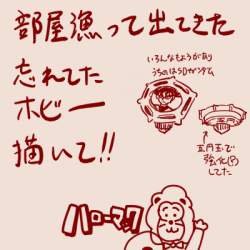 部屋漁って出てきた
忘れてた
ホビー
描いて!!
いろんなもようがあり
うちのはSDガンダム
五円玉で
強化(?)
してた
ハローマック